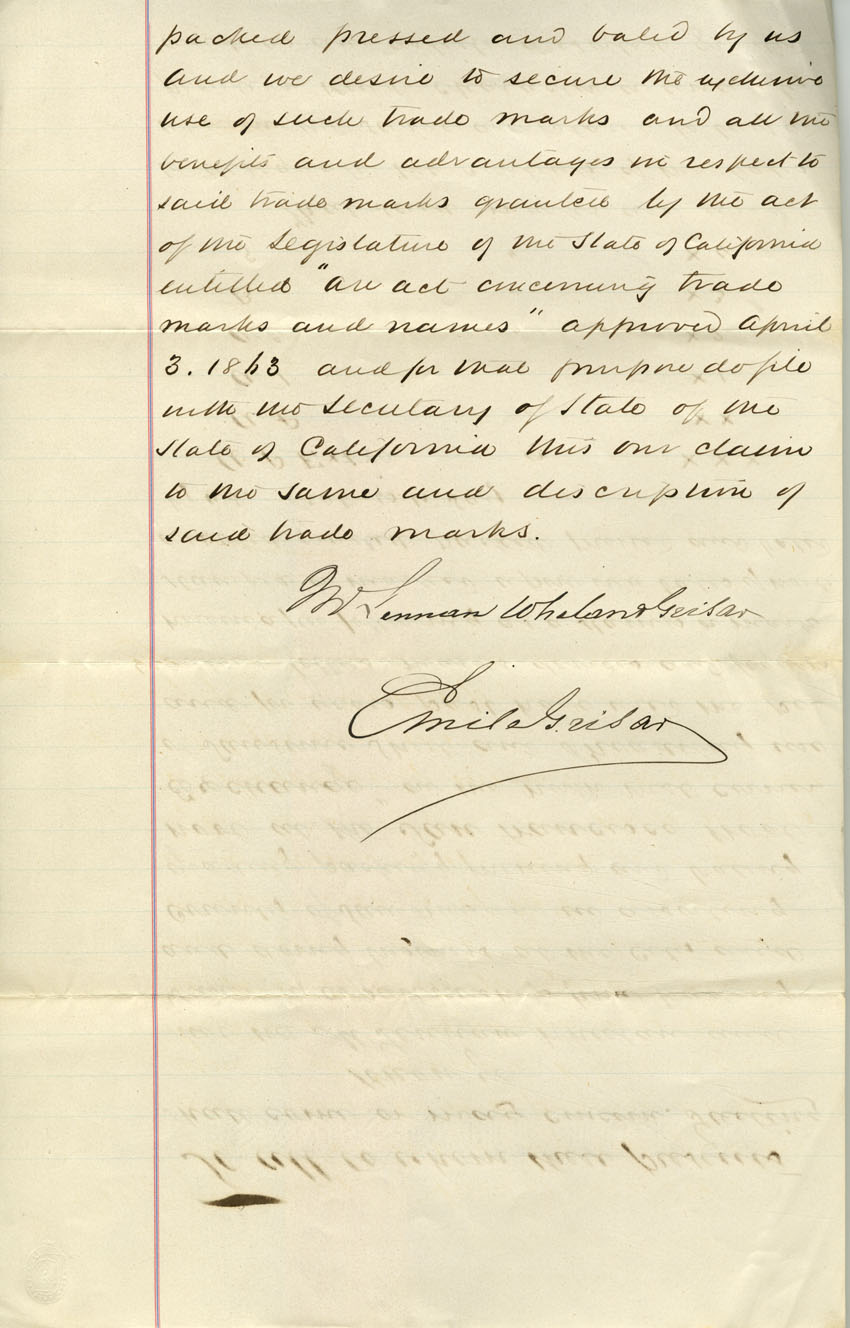 packed pressed and baled by us
and we desire to secure the exclusive
use of such trade marks and all the
benefits and advantages in respect to
said trade marks granted by the act
of the Legislature of the State of California
entitled "An act concerning trade
marks and names" approved April
3. 1863 and for that purpose do file
with the Secretary of State of the
State of California this our claim
to the same and description of
said trade marks.
McLennan Whelan & Grisar
Emile Grisar